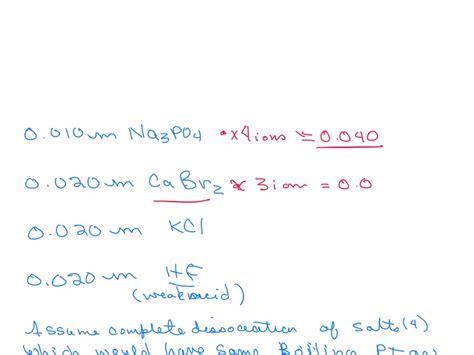 0.010 m Na3PO4 •x4ions = 0.040
0.020 m CaBr2 x 3ion = 0.0
0.020 m KCl
0.020 m HF
(weak acid)
Assume complete dissociation of salts(a)
Which would have same Boiling Pt as